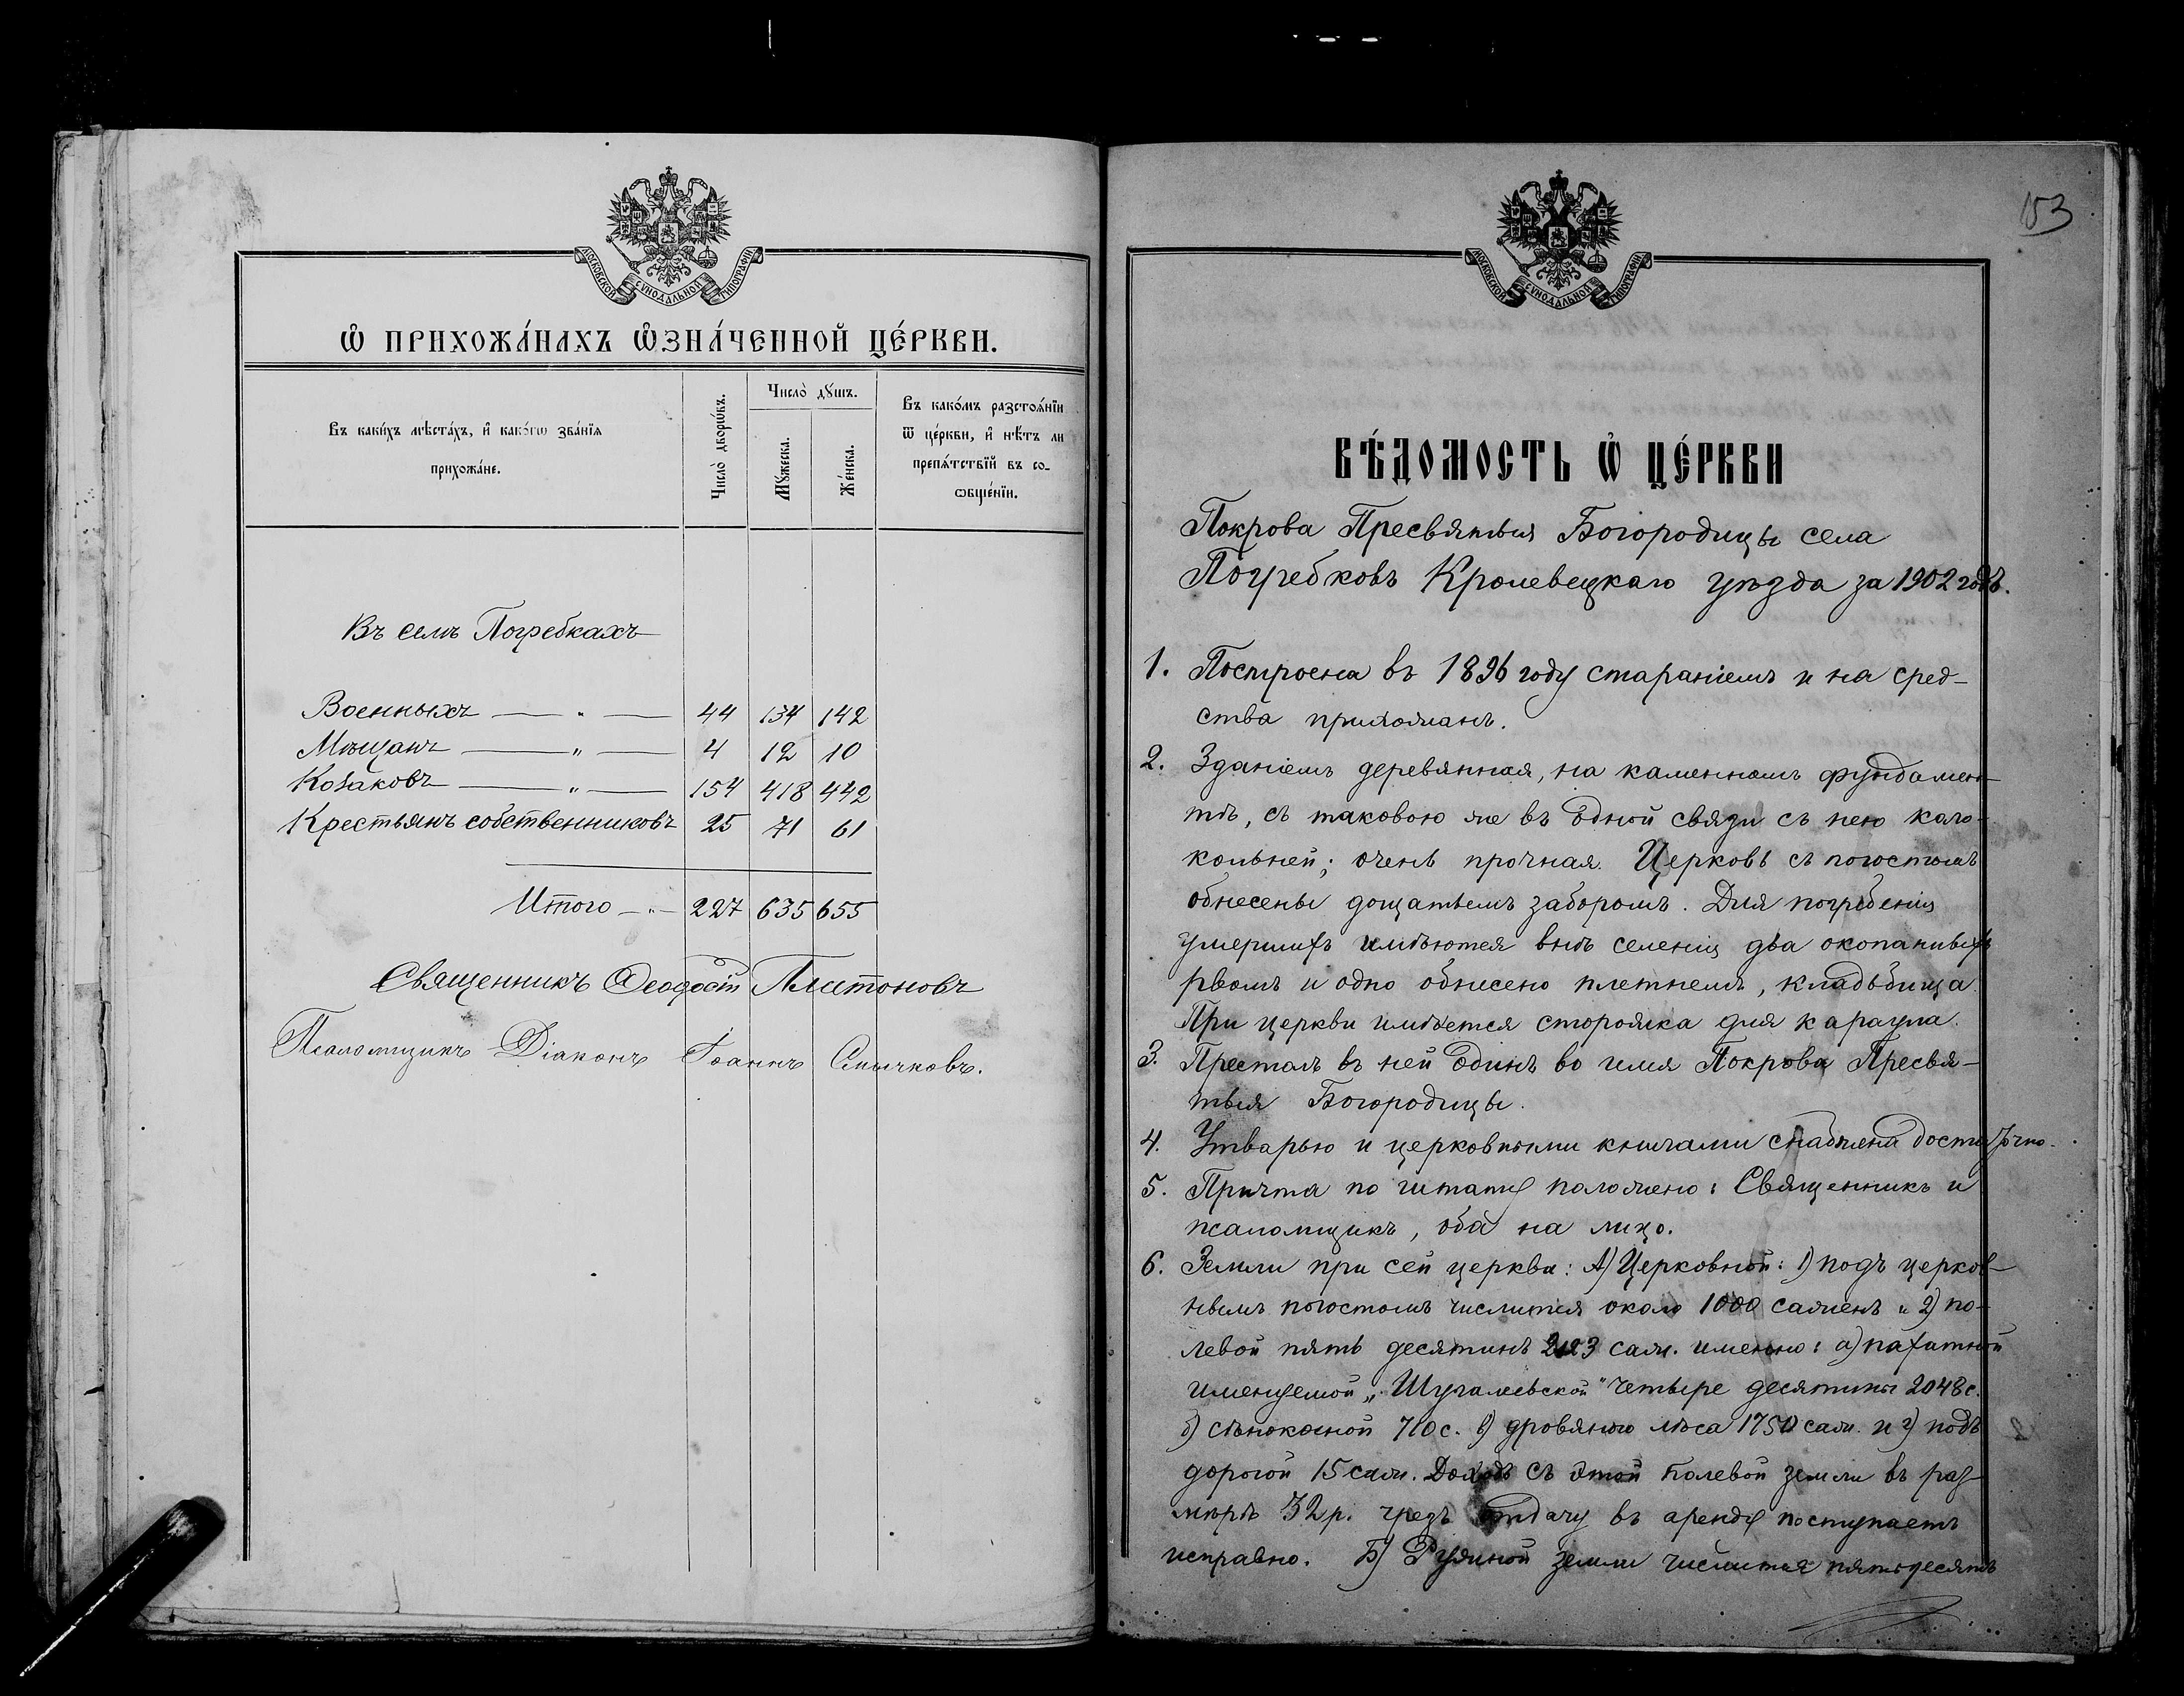 МОСКОВСКОЙ СѴНОДАЛЬНОЙ ТИПОГРАФІИ
Ѡ ПРИХОЖА́НАХЪ ѠЗНА́ЧЕННОЙ ЦЕ́РКВИ.
Въ каки́хъ мѣста́хъ, и҆ како́гѡ зва́нїѧ
прихожа́не.
Число̀ дворѡ́въ.
Число̀ дꙋшъ.
Мꙋ́жеска.
Же́нска.
Въ како́мъ разстоѧ́нїи
ѿ це́ркви, и҆ нѣ́тъ ли
препѧ́тствїй въ со-
ѻбще́нїи.
Въ селѣ Погребкахъ
Военныхъ — „ — 44 134 142
Мѣщанъ — „ — 4 12 10
Козаковъ — „ — 154 418 442
Крестьянъ собственниковъ 25 71 61
Итого — „ — 227 635 655
Священникъ Ѳеодосій Платоновъ
Псаломщикъ Діаконъ Іоаннъ Смычковъ.
153
МОСКОВСКОЙ СѴНОДАЛЬНОЙ ТИПОГРАФІИ
ВѢ́ДОМОСТЬ Ѡ ЦЕ́РКВИ
Покрова Пресвятыя Богородицы села
Погребковъ Кролевецкаго уѣзда за 1902 годъ.
1. Построена въ 1896 году стараніемъ и на сред-
ства прихожанъ.
2. Зданіемъ деревянная, на каменномъ фундамен-
тѣ, съ таковою же въ одной связи съ нею коло-
кольней; очень прочная. Церковь съ погостомъ
обнесены дощатымъ заборомъ. Для погребенія
умершихъ имѣются внѣ селенія два окопанныхъ
рвомъ и одно обнесено плетнемъ, кладбища.
При церкви имѣется сторожка для караула.
3. Престолъ въ ней одинъ во имя Покрова Пресвя-
тыя Богородицы.
4. Утварью и церковными книгами снабжена достаточно.
5. Причта по штату положено: Священникъ и
псаломщикъ, оба на лицо.
6. Земли при сей церкви: А) Церковной: 1) подъ церков-
нымъ погостомъ числится около 1000 саженъ и 2) по-
левой пять десятинъ 2123 саж. именно: а) пахатной
именуемой „Шугалеевской" четыре десятины 2048 с.
б) сѣнокосной 710 с. в) дровяного лѣса 1750 саж. и г) подъ
дорогой 15 саж. Доходъ съ этой полевой земли въ раз-
мѣрѣ 32 р. чрезъ отдачу въ аренду поступаетъ
исправно. Б) Ружной земли числится пятьдесятъ